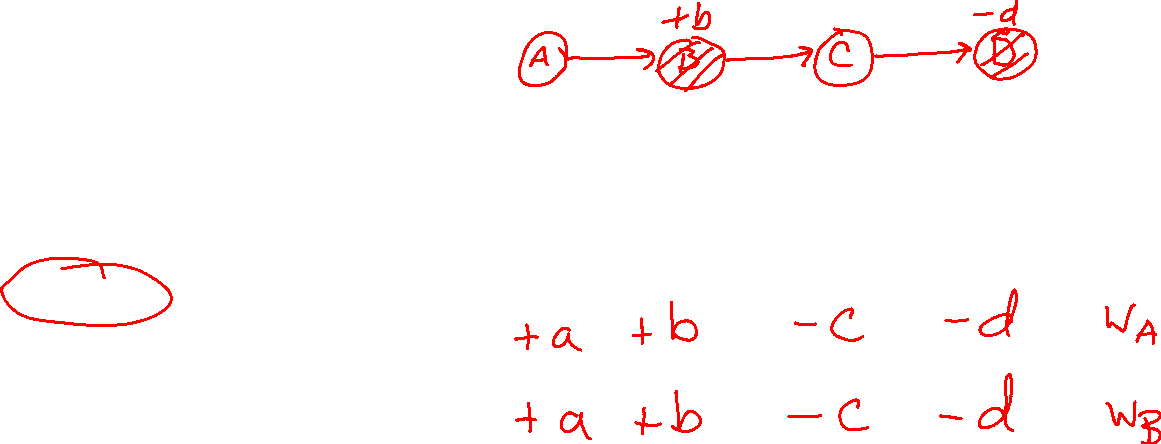 +b -d
A B C D
+a +b -c -d WA
+a +b -c -d WB